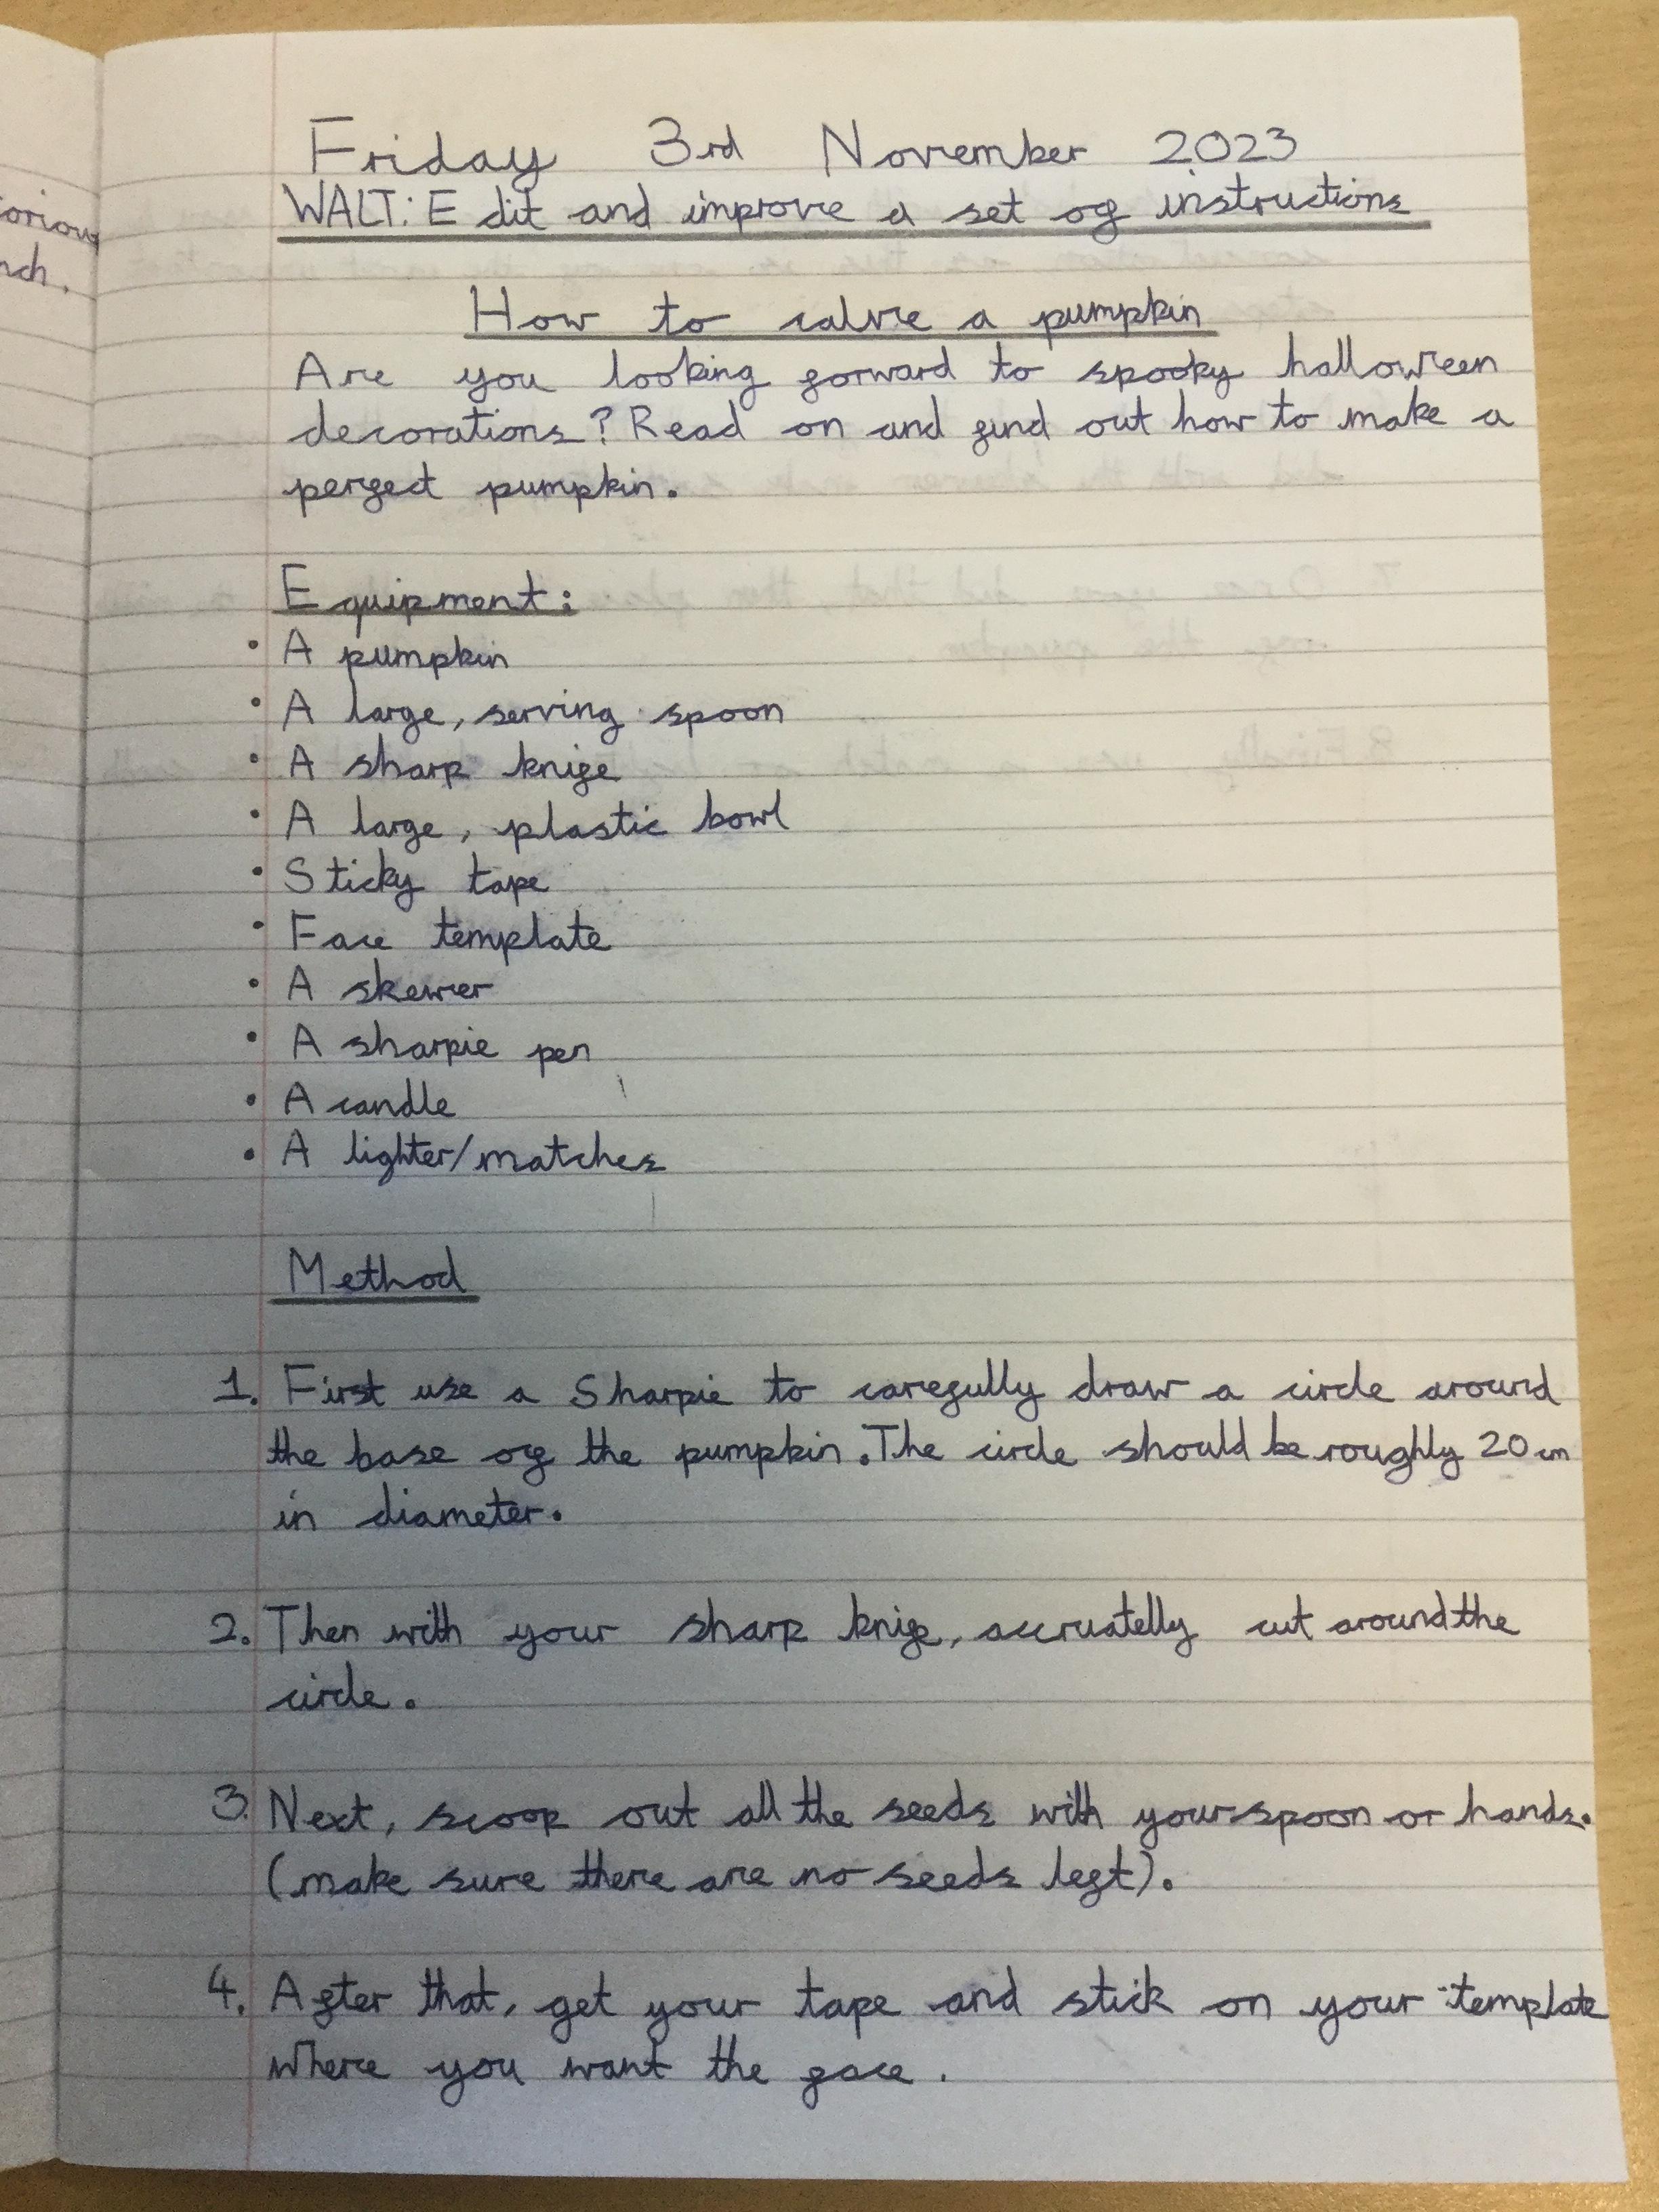 Friday 3rd November 2023
WALT: Edit and improve a set of instructions
How to calvre a pumpkin
Are you looking forward to spooky halloween
decorations? Read on and find out how to make a
perfect pumpkin.
Equipment:
• A pumpkin
• A large, serving spoon
• A sharp knife
• A large, plastic bowl
• Sticky tape
• Face template
• A skewer
• A sharpie pen
• A candle
• A lighter/matches
Method
1. First use a Sharpie to carefully draw a circle around
the base of the pumpkin. The circle should be roughly 20cm
in diameter.
2. Then with your sharp knife, accruatelly cut around the
circle.
3. Next, scoop out all the seeds with your spoon or hands.
(make sure there are no seeds left).
4. After that, get your tape and stick on your template
where you want the face.